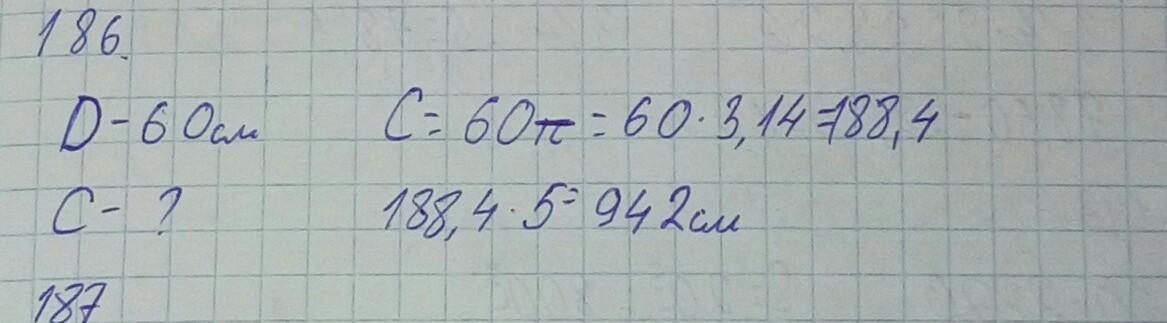 186.
D-60см C= 60π = 60·3,14=188,4
C- ? 188,4·5= 942см
187